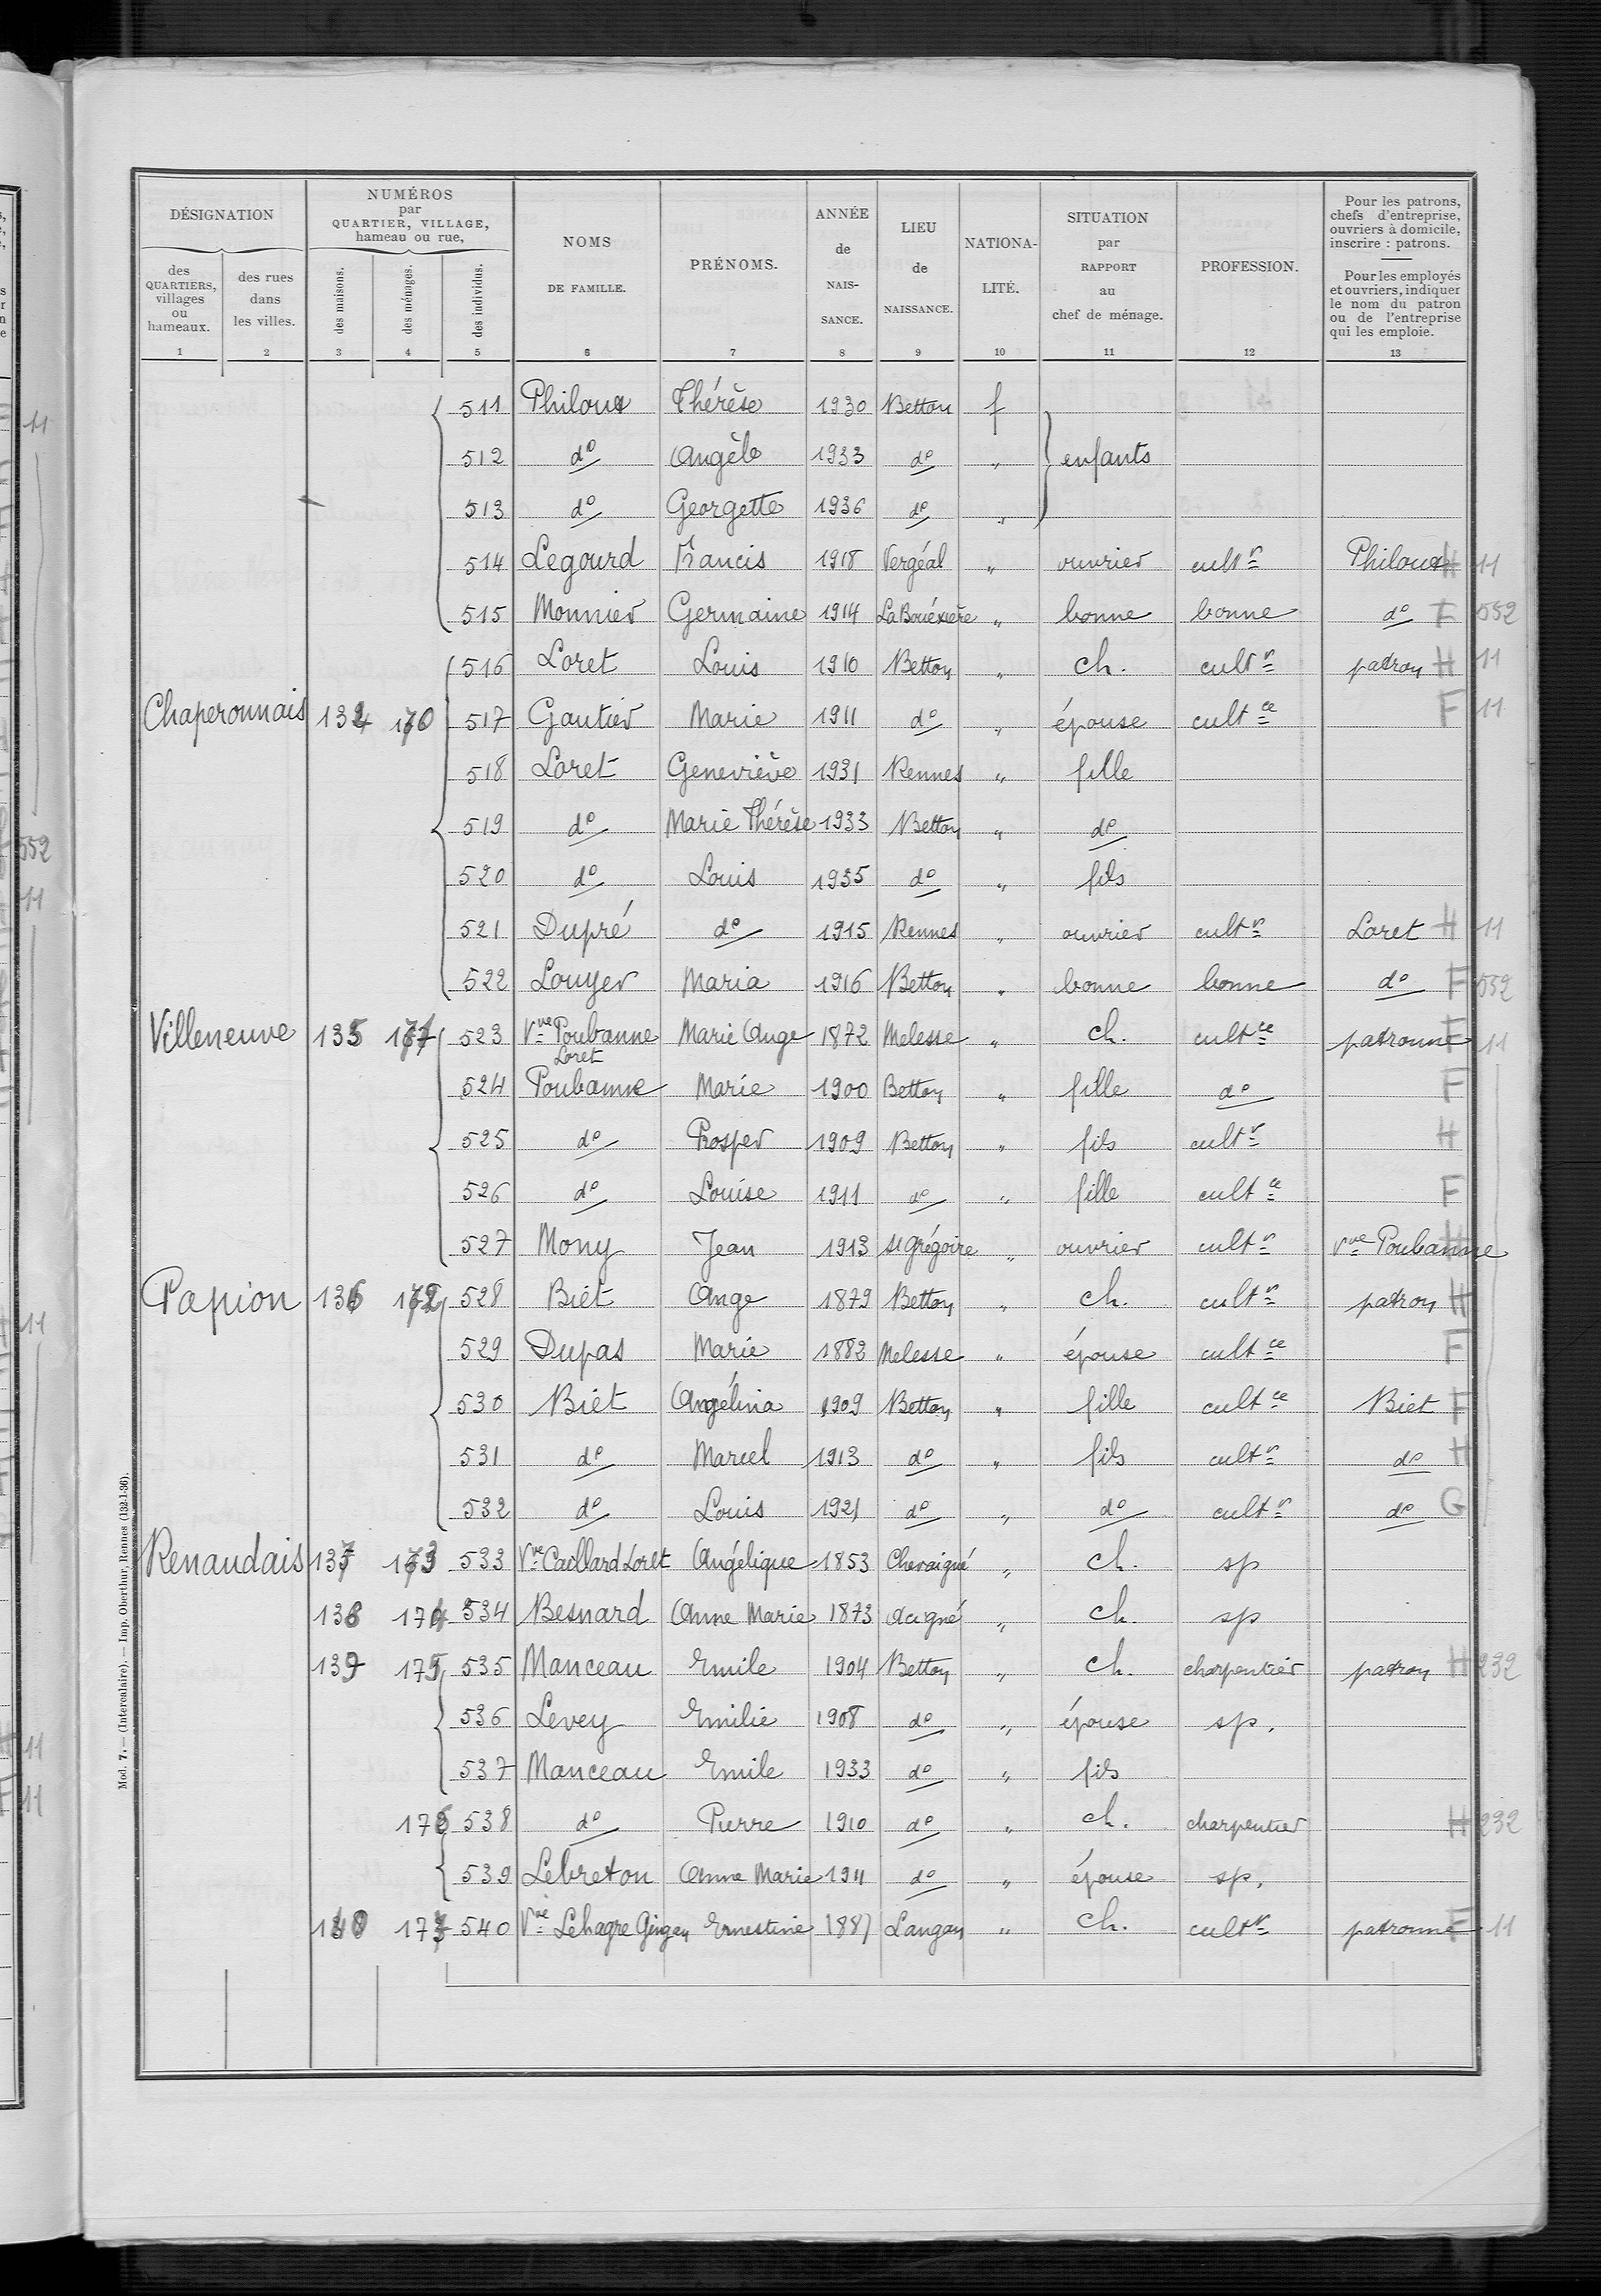 DÉSIGNATION
des QUARTIERS, villages ou hameaux.
des rues dans les villes.
NUMÉROS par QUARTIER, VILLAGE, hameau ou rue,
des maisons.
des ménages.
des individus.
NOMS DE FAMILLE.
PRÉNOMS.
ANNÉE de NAIS-SANCE.
LIEU de NAISSANCE.
NATIONA-LITÉ.
SITUATION par RAPPORT au chef de ménage.
PROFESSION.
Pour les patrons, chefs d'entreprise, ouvriers à domicile, inscrire : patrons.
Pour les employés et ouvriers, indiquer le nom du patron ou de l'entreprise qui les emploie.
1 2 3 4 5 6 7 8 9 10 11 12 13
511 Philoux Thérèse 1930 Betton f
512 do Angèle 1933 do " enfants
513 do Georgette 1936 do "
514 Legourd Francis 1918 Vergéal " ouvrier cultr Philoux H 11
515 Monnier Germaine 1914 La Bouëxière " bonne bonne do F 552
516 Loret Louis 1910 Betton " ch. cultr patron H 11
Chaperonnais 134 170 517 Gautier Marie 1911 do " épouse cultce F 11
518 Loret Geneviève 1931 Rennes " fille
519 do Marie Thérèse 1933 Betton " do
520 do Louis 1935 do " fils
521 Dupré do 1915 Rennes " ouvrier cultr Loret H 11
522 Louyer Maria 1916 Betton " bonne bonne do F 552
Villeneuve 135 171 523 Vve Poubanne Loret Marie Ange 1872 Melesse " ch. cultce patronne F 11
524 Poubanne Marie 1900 Betton " fille do F
525 do Prosper 1909 Betton " fils cultr H
526 do Louise 1911 do " fille cultce F
527 Mony Jean 1913 St Grégoire " ouvrier cultr Vve Poubanne H
Papion 136 172 528 Biét Ange 1879 Betton " ch. cultr patron H
529 Dupas Marie 1882 Melesse " épouse cultce F
530 Biét Angélina 1909 Betton " fille cultce Biet F
531 do Marcel 1913 do " fils cultr do H
532 do Louis 1921 do " do cultr do G
Renaudais 137 173 533 Vve Caillard Loret Angélique 1853 Chevaigné " ch. sp
138 174 534 Besnard Anne Marie 1873 Acigné " ch. sp
139 175 535 Manceau Emile 1904 Betton " ch. charpentier patron H 232
536 Levey Emilie 1908 do " épouse sp.
537 Manceau Emile 1933 do " fils
176 538 do Pierre 1910 do " ch. charpentier H 232
539 Lebreton Anne Marie 1911 do " épouse sp.
140 177 540 Vve Lehagre Ernestine 1887 Langan " ch. cultr patronne F 11
Mod. 7. — (Intercalaire). — Imp. Oberthur, Rennes (132-1-36).